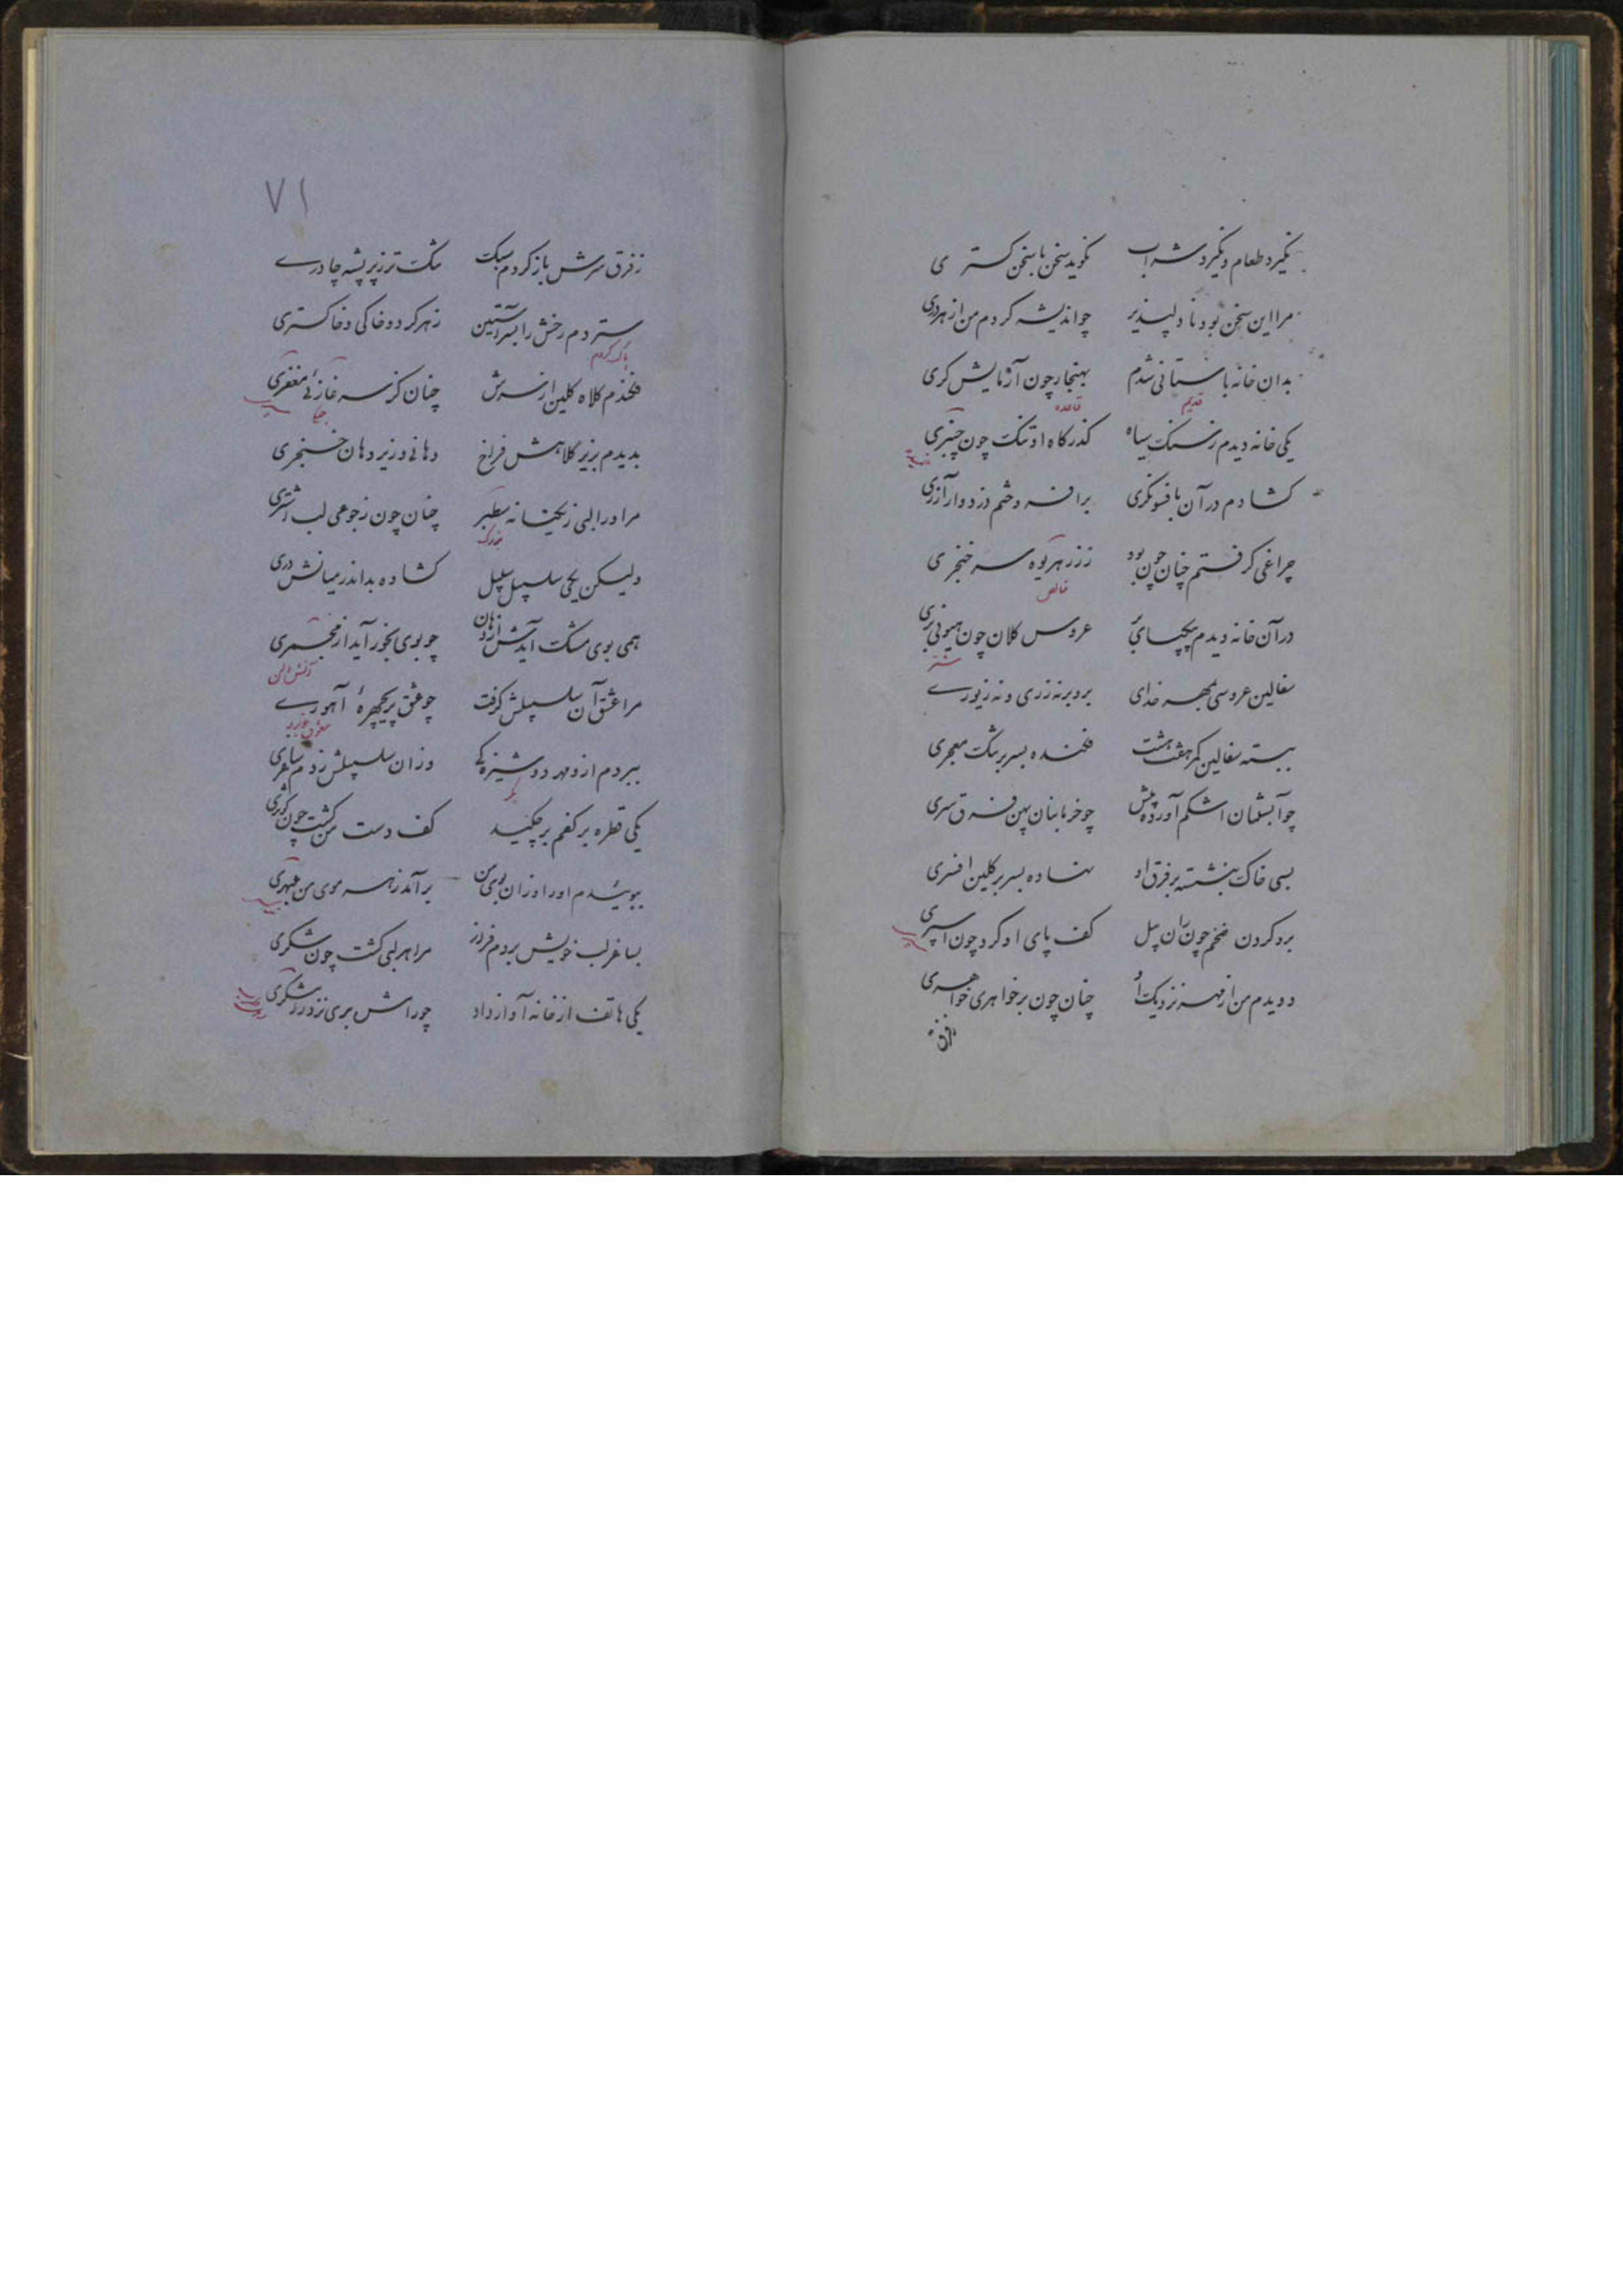 نکیرد طعام و نکیرد شراب نکوید سخن با سخن کستری
مرا این سخن بود نا دلپذیر چو اندیشه کردم من از هر دری
بدان خانه باستانی شدم بهنجار چون آزمایش کری
قدیم قاعده
یکی خانه دیدم ز سنک سیاه کذرکاه او تنک چون چنبری
کشادم در آن بافسونکری برافروختم زردوار آزری
چراغی کرفتم چنان چون بود ز زر هریوه سر خنجری
خالص
در آن خانه دیدم بیکپای عروس کلان چون هیونی بری
شتر
سفالین عروسی بمهر خدای برو بر نه زری و نه زیوری
ببسته سفالین کمر هفت هشت فکنده بسر بر تنک معجری
چو آبستنان اشکم آورده پیش چو خرمابنان پهن فرق سری
بسی خاک بنشسته بر فرق او نهاده بسر بر کلین افسری
برو کردن ضخم چون ران پیل کف پای او کرد چون اسپری
دویدم من از مهر نزدیک او چنان چون بر خواهری خواهری
ز فرق
۷۱
ز فرق سرش باز کردم سبک تنک تر ز پر پشه چادری
ستردم رخش را بسر آستین ز هر کرد و خاکی و خاکستری
پاک کردم
فکندم کلاه کلین از سرش چنان کز سر غازئی مغفری
بدیدم بزیر کلاهش فراخ دهانی و زیر دهان خنجری
مر او را لبی زنکیانه سطبر چنان چون ز جوعی لب اشتری
ولیکن یکی سلسبیل سلسبیل کشاده بد اندر میانش دری
همی بوی مشک آمدش از دهان چو بوی بخور آید از مجمری
آتش دان
مرا عشق آن سلسبیلش کرفت چو عشق پریچهرهٔ آهوری
ببردم ازو مهر دوشیزکی وزان سلسبیلش زدم ساغری
بکر
یکی قطره بر کفم بر چکید کف دست من کشت چون کوثری
ببوئیدم او را وزان بوی من برآمد ز هر موی من عبهری
بساغر لب خویش بردم فراز مرا هر لبی کشت چون شکری
یکی هاتف از خانه آواز داد چو رامش بری نزد رامشکری